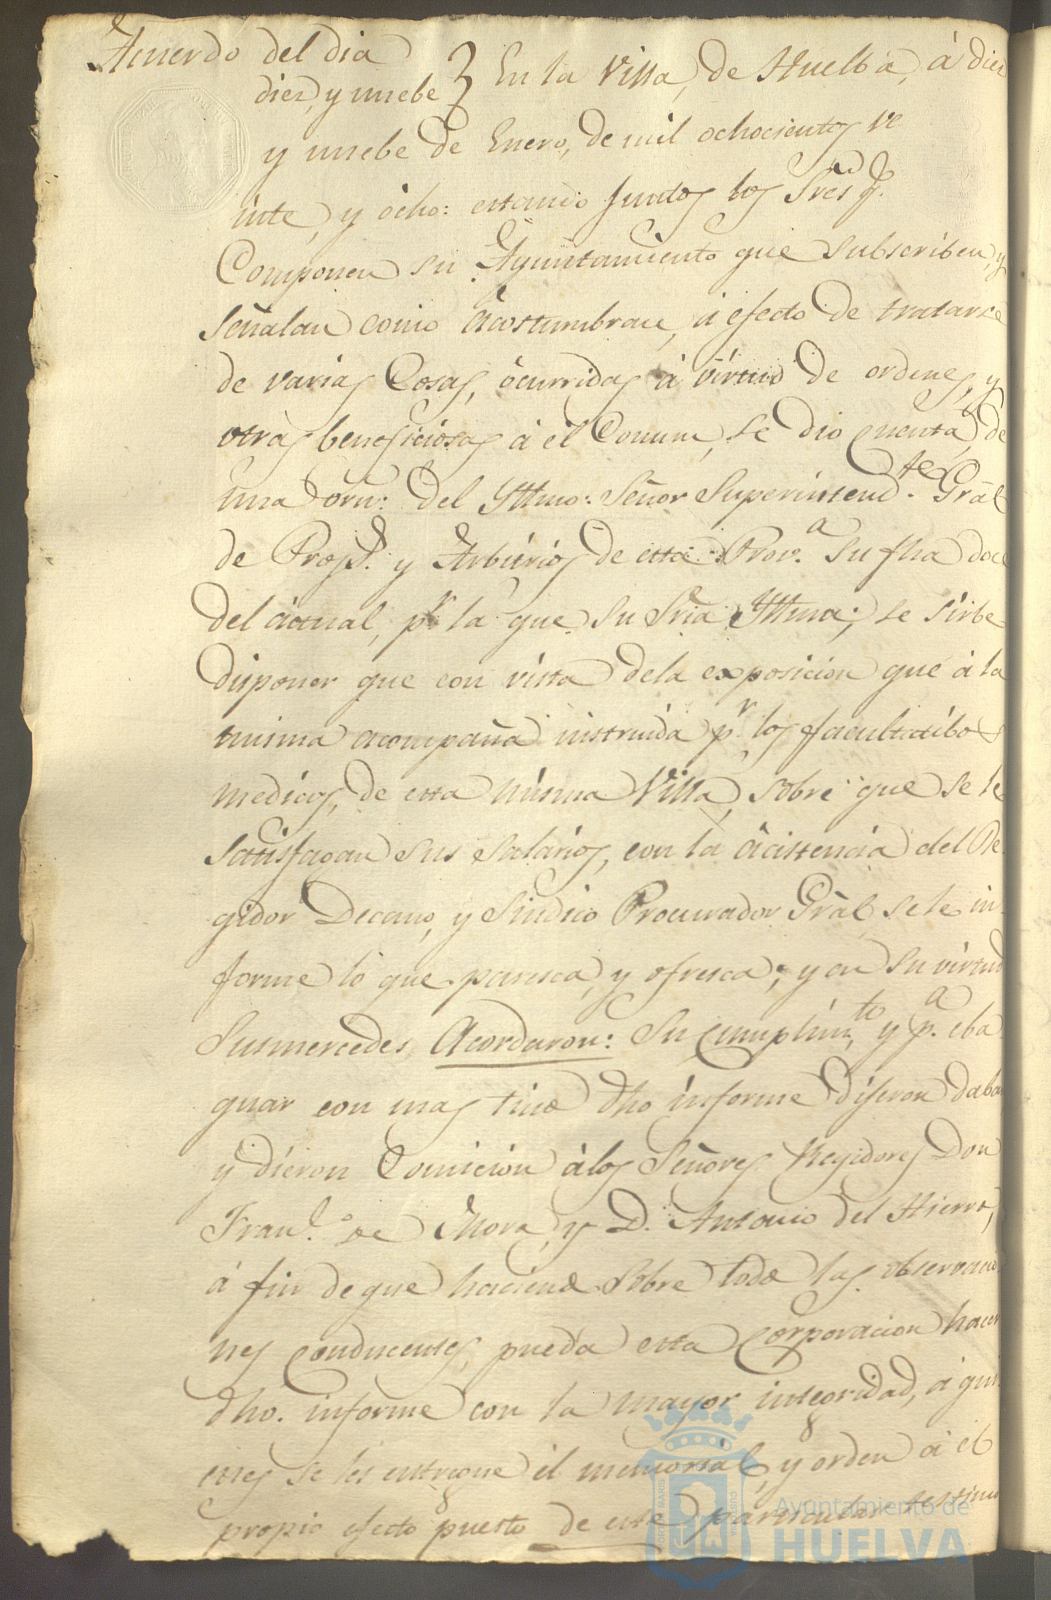 Acuerdo del dia
diez, y nuebe } En la Villa, de Huelba, á diez
y nuebe de Enero, de mil ochocientos ve
inte, y ôcho: estando juntos los Sres q.
Componen su Ayuntamiento que subscriben, y
señalan como âcostumbran, á efecto de tratarse
de varias Cosas, ôcurridas á virtud de ordenes, y
otras beneficiosas á el Comun, se dio cuenta, de
una ôrn: del Yttmo: Señor Superintend.te Gral
de Prop.s y Arbitrios de esta Prov.a su fha doce
del actual, p.r la que su Sria Yttma; se sirbe
disponer que con vista dela exposicion que á la
misma acompaña instruida p.r los facultatibos
medicos, de esta misma Villa, sobre que se le
satisfagan sus salarios, con la âcistencia del Re-
gidor Decano, y Sindico Procurador Gral, se le in-
forme lo que paresca, y ofresca; y en su virtud
Susmercedes Acordaron: Su Cumplim.to, y p.a eba
guar con mas tino dho informe dijeron daban
y dieron Comicion álos Señores Regidores Don
Fran.co de Mora, y D. Antonio del Hierro,
á fin de que haciendo sobre todo las observacio
nes conducentes, pueda esta Corporacion hacer
dho. informe con la mayor integridad, á qui
enes se les entregue el memorial, y orden á el
propio efecto puesto de este particular testimo
Ayuntamiento de
HUELVA